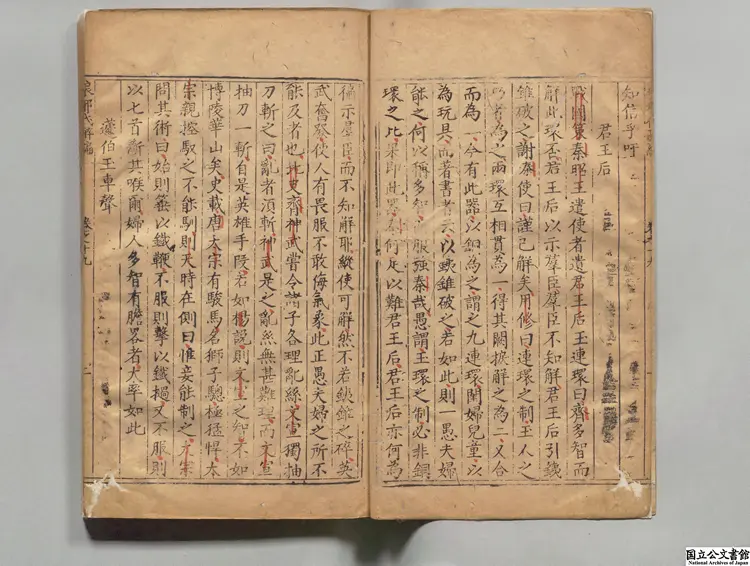 知信乎吁
君王后
戰國策秦昭王遣使者遺君王后玉連環曰齊多智而
解此環否君王后以示羣臣羣臣不知解君王后引錐
錐破之謝秦使曰謹已解矣用修曰連環之制玉人之
巧者為之兩環互相貫為一得其關捩解之為二又合
而為一今有此器以銅為之謂之九連環閨婦兒童以
為玩具而著書者云以鐵錐破之若如此則一愚夫婦
能之何以稱多智服强秦哉愚謂玉環之制必非銅
環之比果即此器秦何足以難君王后君王后亦何為
徧示羣臣而不知解耶縱使可解然不若鐵錐之碎英
武奮發使人有畏服不敢侮氣象此正愚夫婦之所不
能及者也北史齊神武嘗令諸子各理亂絲文宣獨抽
刀斬之曰亂者須斬神武是之亂絲無甚難理而文宣
抽刀一斬自是英雄手段若如楊說則文宣之智不如
博陵華山矣史載唐太宗有駿馬名獅子驄極猛悍太
宗親控馭之不能馴則天時在側曰惟妾能制之太宗
問其術曰始則箠以鐵鞭不服則擊以鐵撾又不服則
以匕首斷其喉爾婦人多智有膽畧者大率如此
蘧伯玉車聲
琅邪代醉編
卷之十九
国立公文書館
National Archives of Japan